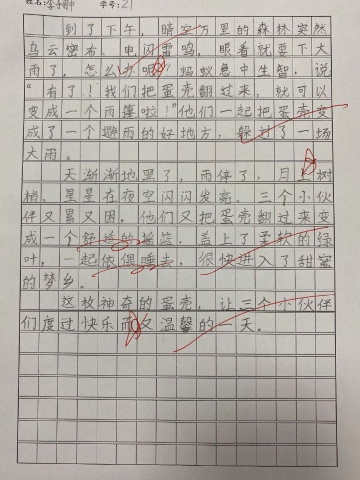 姓名:李子翀 学号:21
到了下午，晴空万里的森林突然
乌云密布，电闪雷鸣，眼看就要下大
雨了，怎么办呢？蚂蚁急中生智，说
“有了！我们把蛋壳翻过来，就可以
变成一个雨篷啦！”他们一起把蛋壳变
成了一个避雨的好地方，躲过了一场
大雨。
天渐渐地黑了，雨停了，月上树
梢，星星在夜空闪闪发亮。三个小伙
伴又累又困，他们又把蛋壳翻过来变
成一个舒适的摇篮，盖上了柔软的绿
叶，一起依偎睡去，很快进入了甜蜜
的梦乡。
这枚神奇的蛋壳，让三个小伙伴
们度过快乐而又温馨的一天。